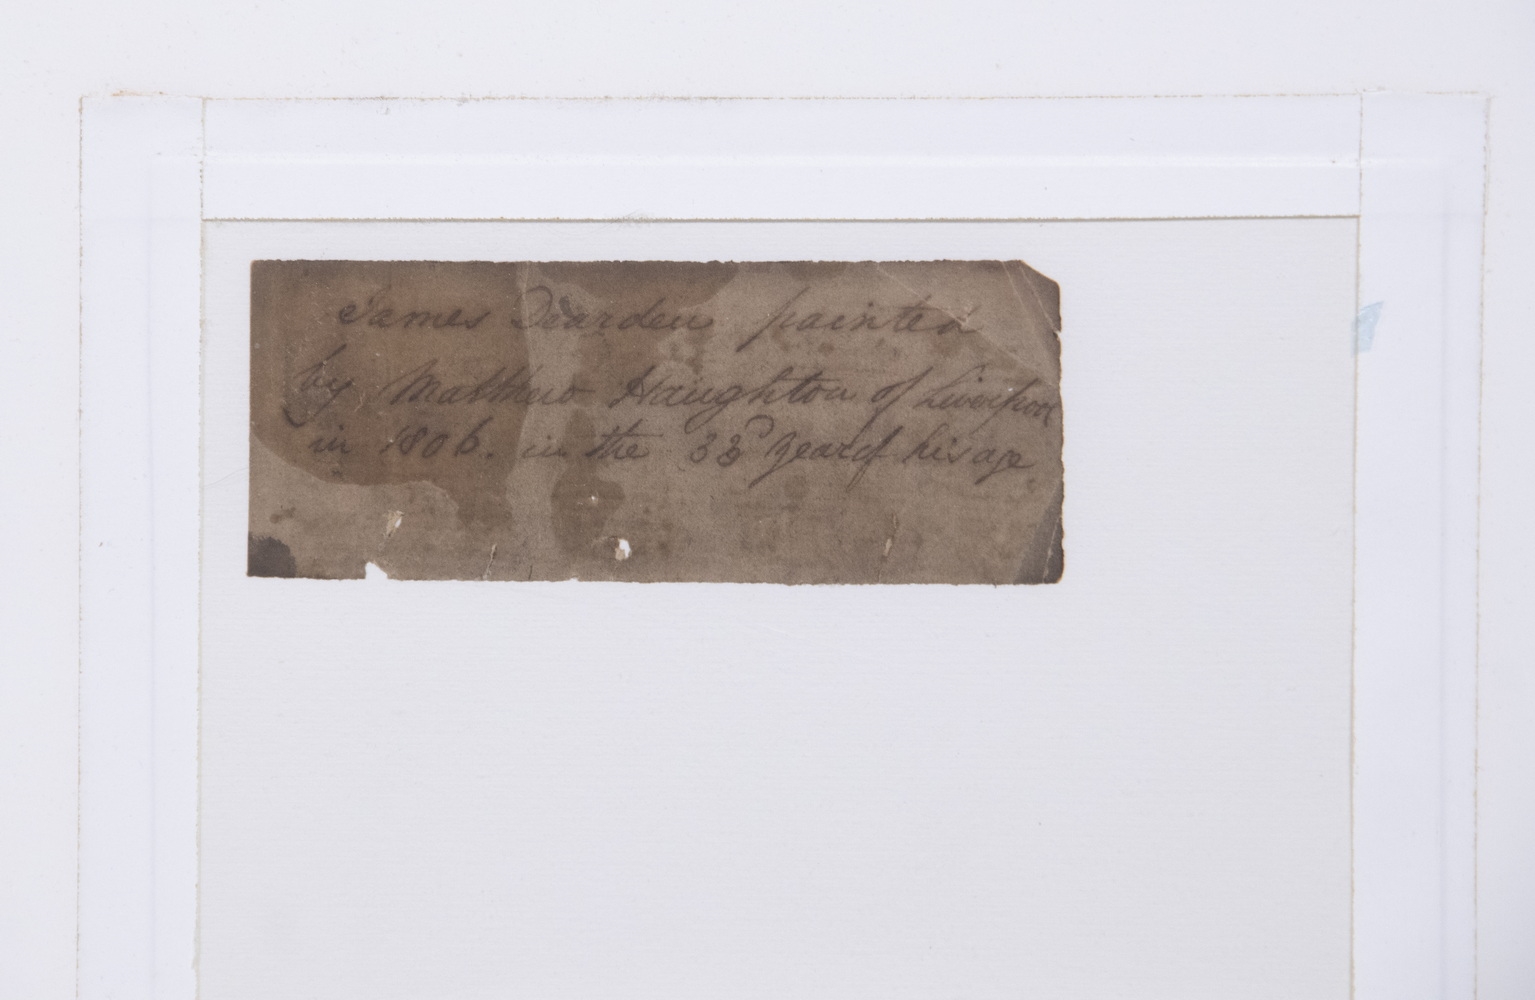 James Dearden painted
by Matthew Haughton of Liverpool
in 1806. in the 33d year of his age